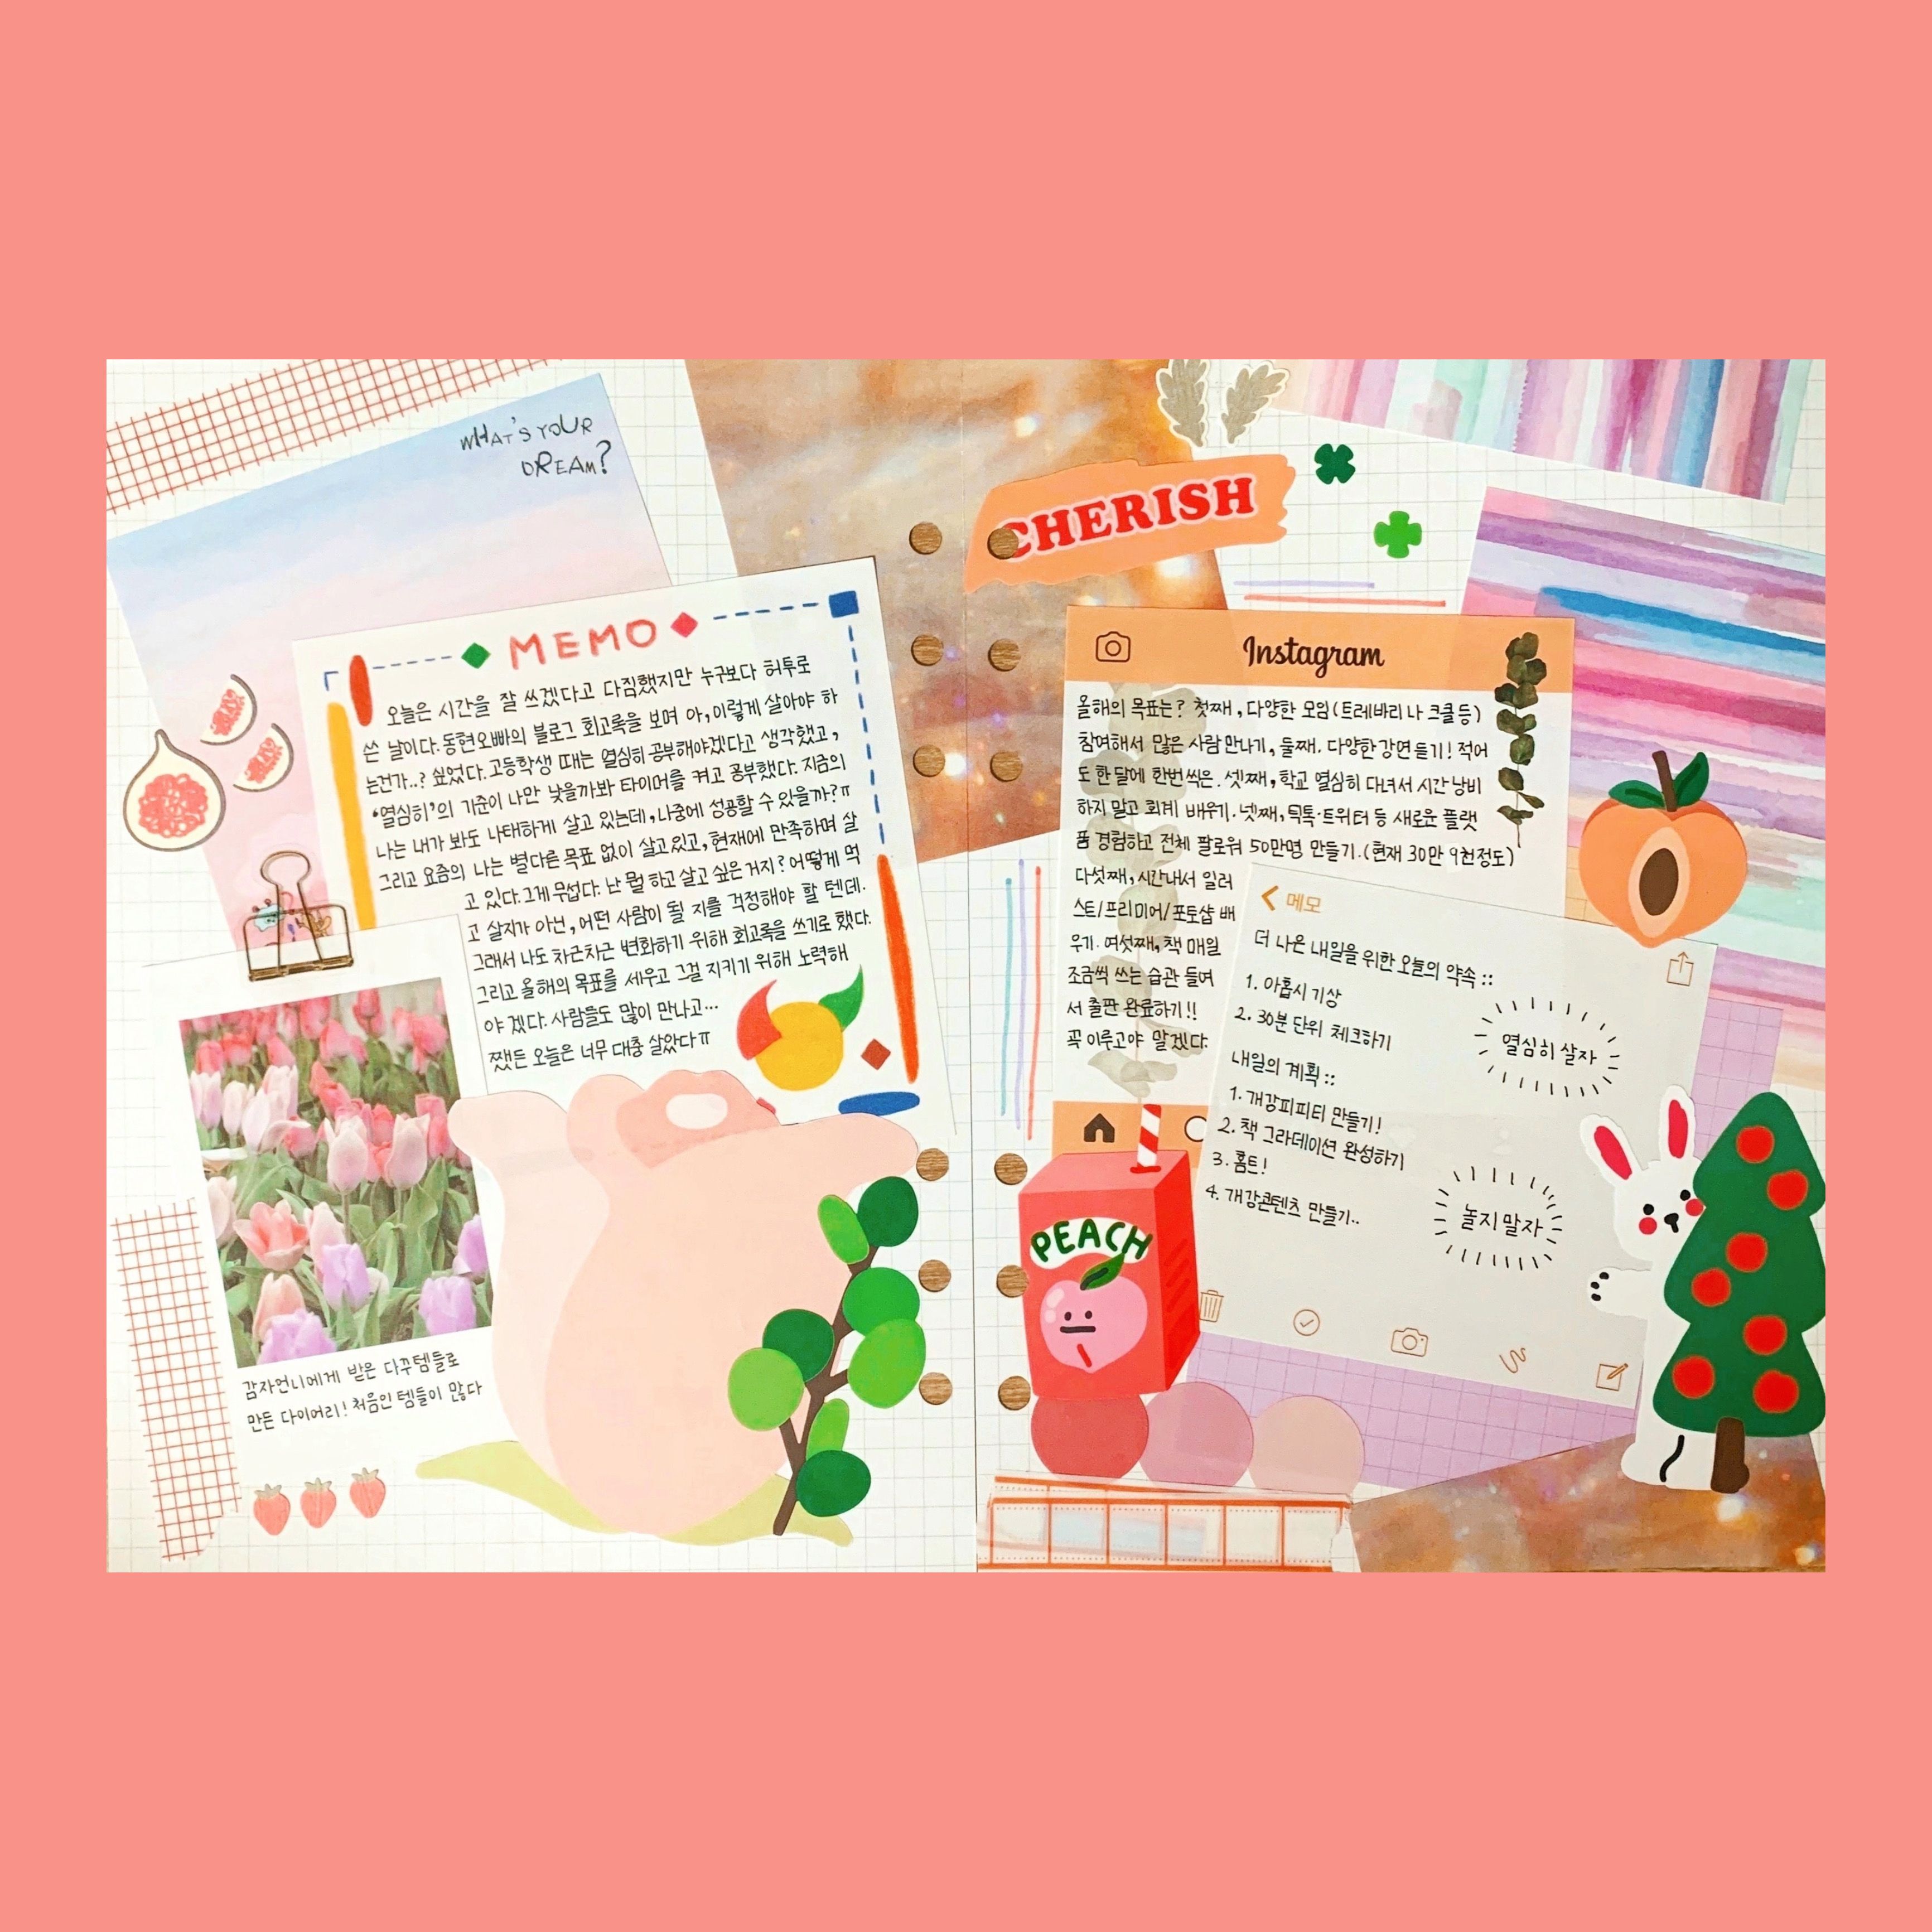 WHAT'S YOUR
DREAM?
MEMO
오늘은 시간을 잘 쓰겠다고 다짐했지만 누구보다 허투로
쓴 날이다. 동현오빠의 블로그 회고록을 보며 아, 이렇게 살아야 하
는건가..? 싶었다. 고등학생 때는 열심히 공부해야겠다고 생각했고,
'열심히'의 기준이 나만 낮을까봐 타이머를 켜고 공부했다. 지금의
나는 내가 봐도 나태하게 살고 있는데, 나중에 성공할 수 있을까?ㅠ
그리고 요즘의 나는 별다른 목표 없이 살고있고, 현재에 만족하며 살
고 있다. 그게 무섭다. 난 뭘 하고 살고 싶은 거지? 어떻게 먹
고 살지가 아닌, 어떤 사람이 될 지를 걱정해야 할 텐데.
그래서 나도 차근차근 변화하기 위해 회고록을 쓰기로 했다.
그리고 올해의 목표를 세우고 그걸 지키기 위해 노력해
야 겠다. 사람들도 많이 만나고...
쨌든 오늘은 너무 대충 살았다ㅠ
감자언니에게 받은 다꾸템들로
만든 다이어리! 처음인 템들이 많다
CHERISH
Instagram
올해의 목표는? 첫째, 다양한 모임(트레바리나 크클 등)
참여해서 많은 사람 만나기, 둘째. 다양한 강연 듣기! 적어
도 한 달에 한번씩은. 셋째, 학교 열심히 다녀서 시간 낭비
하지 말고 회계 배우기. 넷째, 틱톡·트위터 등 새로운 플랫
폼 경험하고 전체 팔로워 50만명 만들기. (현재 30만 9천정도)
다섯째, 시간내서 일러
스트/프리미어/포토샵 배
우기. 여섯째, 책 매일
조금씩 쓰는 습관 들여
서 출판 완료하기!!
꼭 이루고야 말겠다.
메모
더 나은 내일을 위한 오늘의 약속 ::
1. 아홉시 기상
2. 30분 단위 체크하기
열심히 살자
내일의 계획 ::
1. 개강피피티 만들기!
2. 책 그라데이션 완성하기
3. 홈트!
4. 개강콘텐츠 만들기..
놀지 말자
PEACH